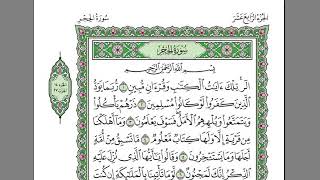 سُورَةُ الحِجْرِ
الجُزْءُ الرَّابِعَ عَشَرَ
سُورَةُ الحِجْرِ
بِسْمِ اللَّهِ الرَّحْمَٰنِ الرَّحِيمِ
الٓر تِلْكَ ءَايَٰتُ ٱلْكِتَٰبِ وَقُرْءَانٍ مُّبِينٍ ١ رُّبَمَا يَوَدُّ
ٱلَّذِينَ كَفَرُوا۟ لَوْ كَانُوا۟ مُسْلِمِينَ ٢ ذَرْهُمْ يَأْكُلُوا۟
وَيَتَمَتَّعُوا۟ وَيُلْهِهِمُ ٱلْأَمَلُ فَسَوْفَ يَعْلَمُونَ ٣ وَمَآ أَهْلَكْنَا
مِن قَرْيَةٍ إِلَّا وَلَهَا كِتَابٌ مَّعْلُومٌ ٤ مَّا تَسْبِقُ مِنْ أُمَّةٍ
أَجَلَهَا وَمَا يَسْتَـْٔخِرُونَ ٥ وَقَالُوا۟ يَٰٓأَيُّهَا ٱلَّذِى نُزِّلَ عَلَيْهِ
ٱلذِّكْرُ إِنَّكَ لَمَجْنُونٌ ٦ لَّوْ مَا تَأْتِينَا بِٱلْمَلَٰٓئِكَةِ إِن كُنتَ